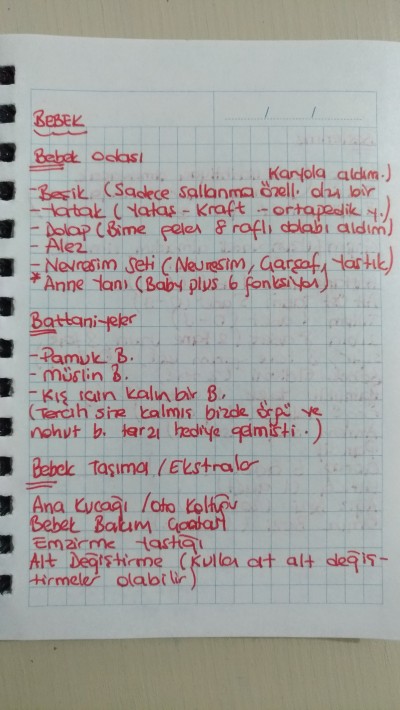 BEBEK
Bebek Odası
Karyola aldım.)
- Beşik (Sadece sallanma özell. olan bir
- Yatak (Yataş - Kraft - ortopedik y.)
- Dolap (Bime gelen 8 raflı dolabı aldım)
- Alez
- Nevresim Seti (Nevresim, Çarşaf, Yastık)
* Anne Yanı (Baby plus 6 fonksiyon)
Battaniyeler
- Pamuk B.
- Müslin B.
- Kış için kalın bir B.
(Tercih size kalmış bizde örgü ve
nohut b. tarzı hediye gelmişti.)
Bebek Taşıma / Ekstralar
Ana Kucağı / oto Koltuğu
Bebek Bakım Çantası
Emzirme Yastığı
Alt Değiştirme (Kullan at alt değiş-
tirmeler olabilir)